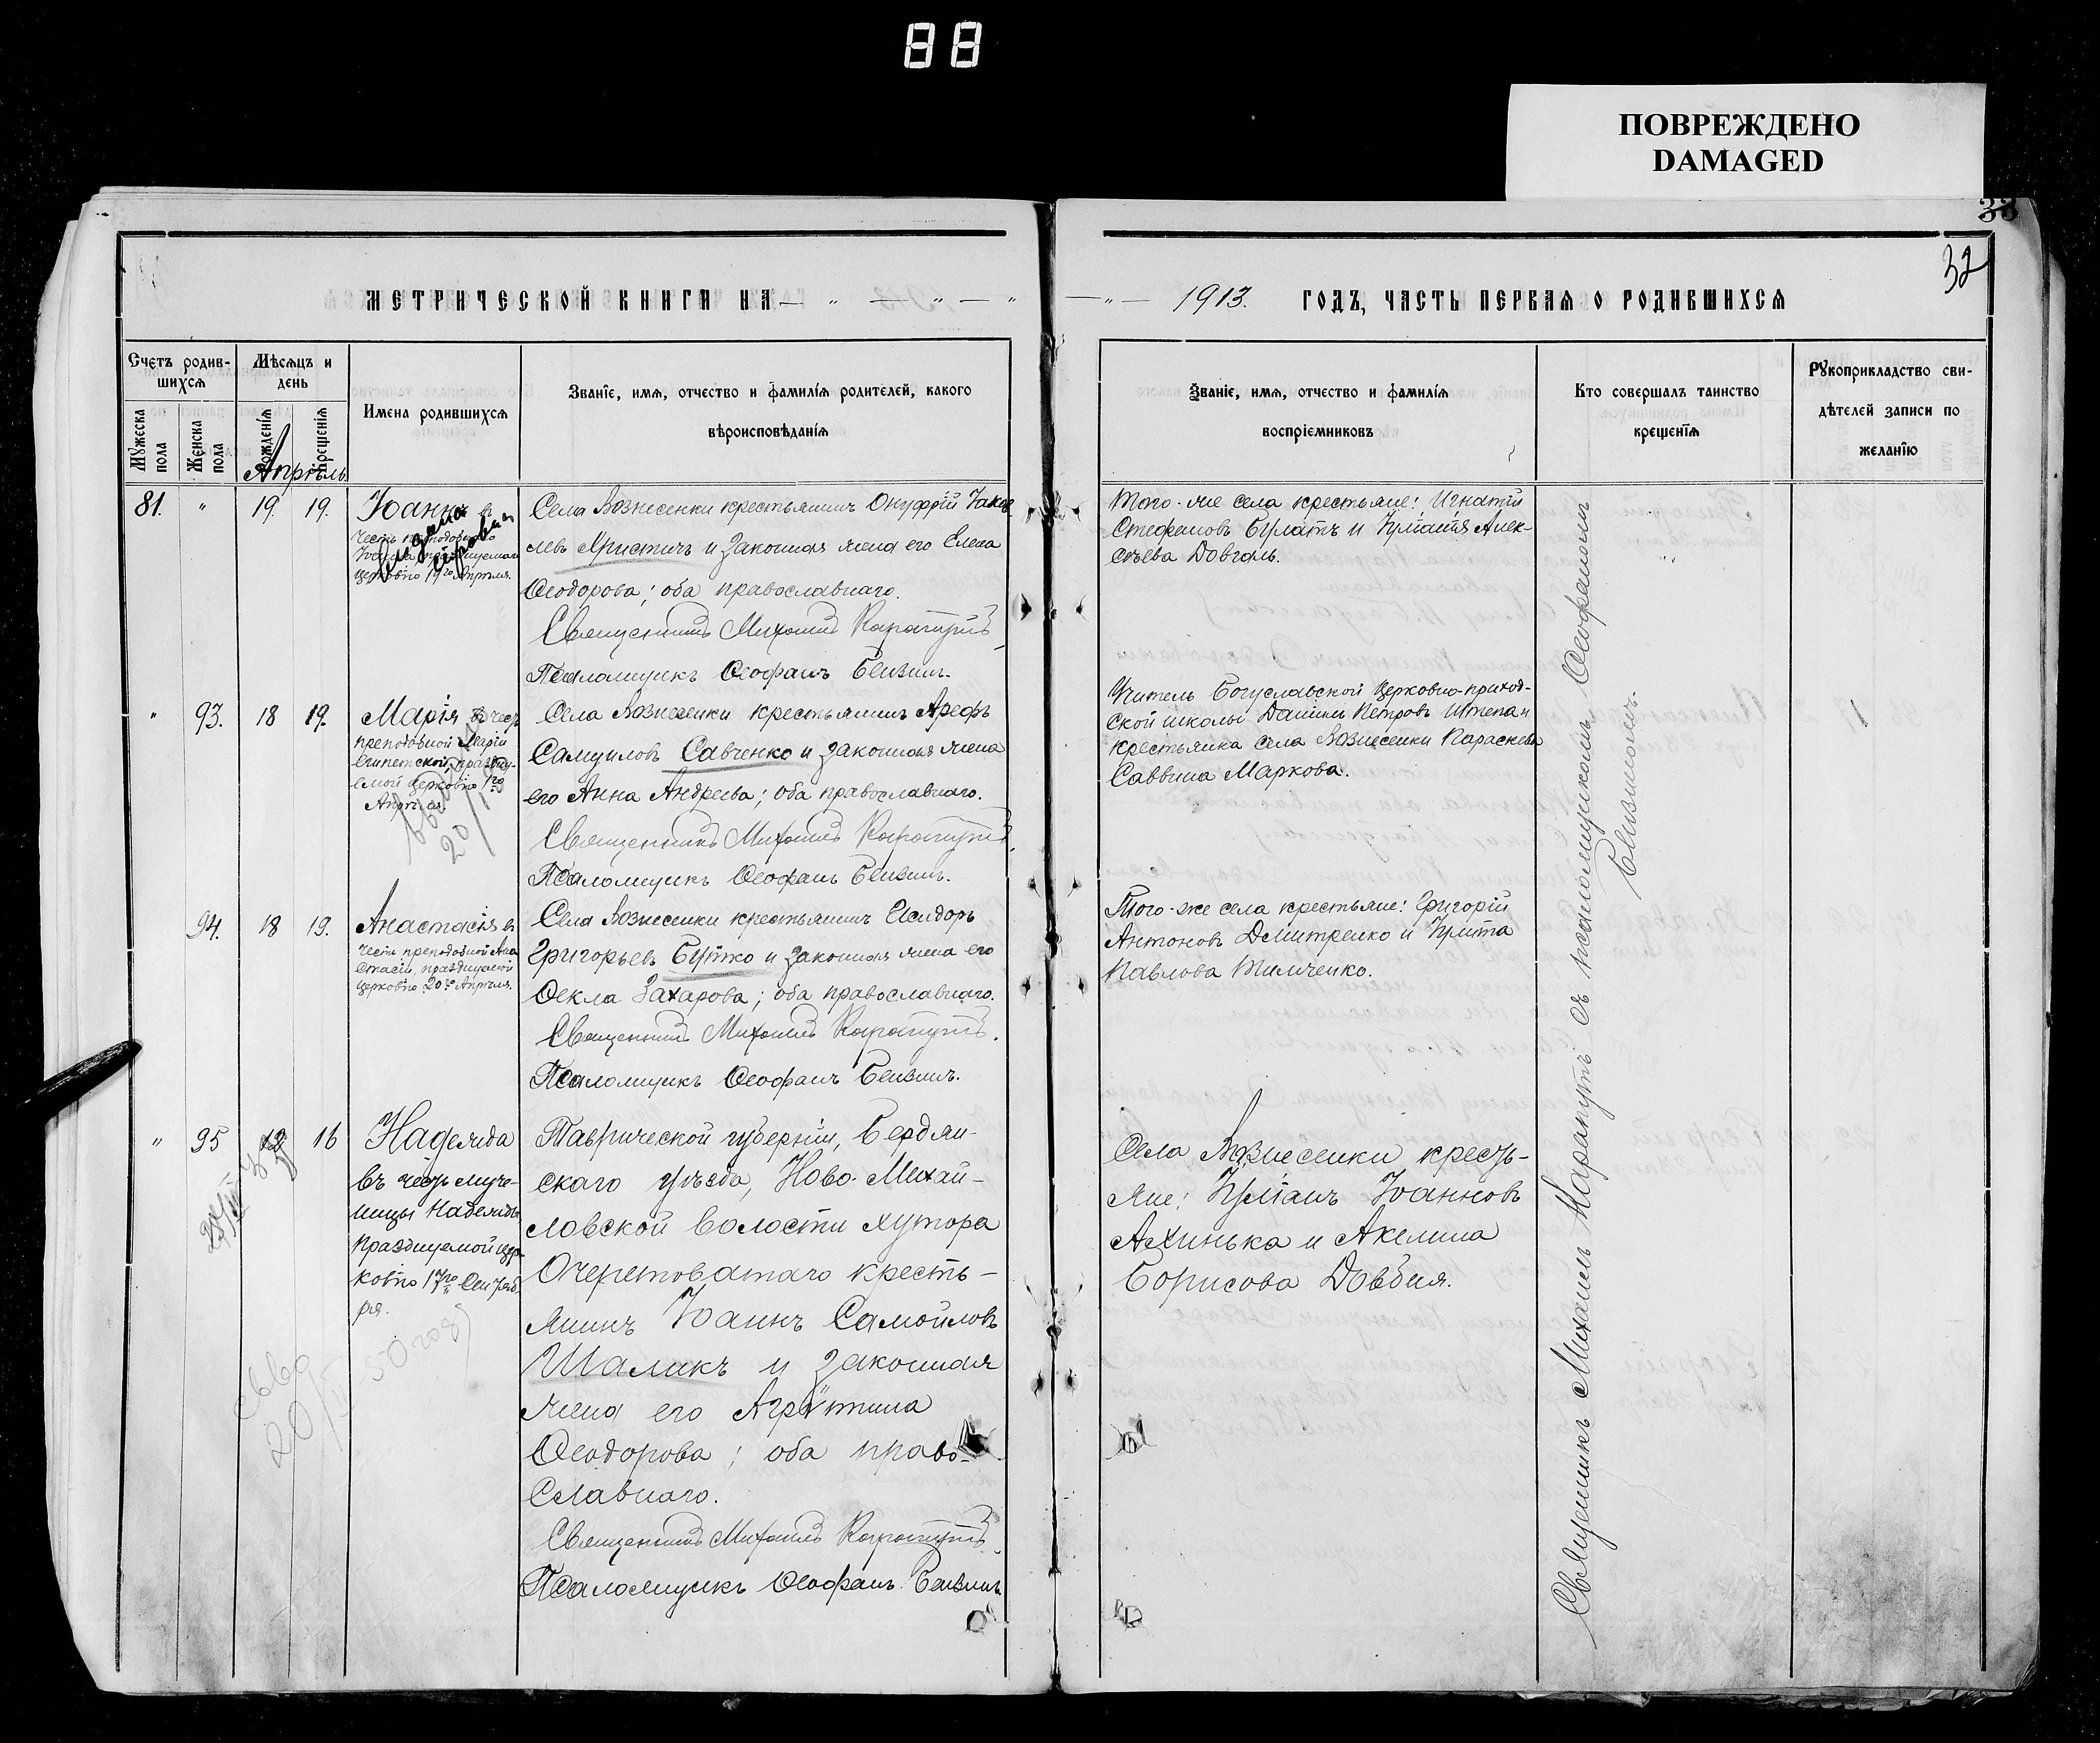 88
ПОВРЕЖДЕНО
DAMAGED
33
32
МЕТРИЧЕСКОЙ КНИГИ НА — „ — „ — „
— „ — 1913. ГОДЪ, ЧАСТЬ ПЕРВАЯ О РОДИВШИХСЯ
Счетъ родив-
шихся
Мѣсяцъ и
день
Мужеска
пола
Женска
пола
Рожденія
Крещенія
Имена родившихся
Званіе, имя, отчество и фамилія родителей, какого
вѣроисповѣданія
Званіе, имя, отчество и фамилія
воспріемниковъ
Кто совершалъ таинство
крещенія
Рукоприкладство сви-
дѣтелей записи по
желанію
Апрѣль
81. „ 19. 19.
Іоаннъ в
честь преподобнаго
Іоанна, празднуемаго
церковію 19го Апрѣля.
Села Вознесенки крестьянинъ Онуфрій Іаков
левъ Христичъ и законная жена его Елена
Ѳеодорова; оба православнаго.
Священникъ Михаилъ Карапутъ
Псаломщикъ Ѳеофанъ Бензинъ.
Того-же села крестьяне: Игнатій
Стефановъ Булатъ и Іуліанія Алек-
сѣева Довголь.
„ 93. 18 19.
Марія въ честь
преподобной Маріи
Египетской, праздну-
емой церковію 1го
Апрѣля.
20/I
Села Вознесенки крестьянинъ Ареѳъ
Самуиловъ Савченко и законная жена
его Анна Андреева; оба православнаго.
Священникъ Михаилъ Карапутъ.
Псаломщикъ Ѳеофанъ Бензинъ.
Учитель Богуславской церковно-приход-
ской школы Даніилъ Петровъ Штепа и
крестьянка села Вознесенки Параскева
Саввина Маркова.
94. 18 19.
Анастасія въ
честь преподобной Ана
стасіи, празднуемой
церковію 20го Апрѣля.
Села Вознесенки крестьянинъ Исидоръ
Григорьевъ Бутко и законная жена его
Ѳекла Захарова; оба православнаго.
Священникъ Михаилъ Карапутъ.
Псаломщикъ Ѳеофанъ Бензинъ.
Того-же села крестьяне: Григорій
Антоновъ Дмитренко и Іулита
Павлова Тимченко.
„ 95 16
Надежда
въ честь муче-
ницы Надежды
празднуемой цер-
ковію 17го Сентяб-
ря.
Таврической губерніи, Бердян-
скаго уѣзда, Ново-Михай-
ловской волости хутора
Очеретоватаго кресть-
янинъ Іоаннъ Самойловъ
Шаликъ и законная
жена его Агрипина
Ѳеодорова; оба право-
славнаго.
Священникъ Михаилъ Карапутъ.
Псаломщикъ Ѳеофанъ Бензинъ.
Села Вознесенки кресть-
яне: Іуліанъ Іоанновъ
Ахинька и Акелина
Борисова Довбня.
20/II
Священникъ Михаилъ Карапутъ съ псаломщикомъ Ѳеофаномъ
Бензиномъ.